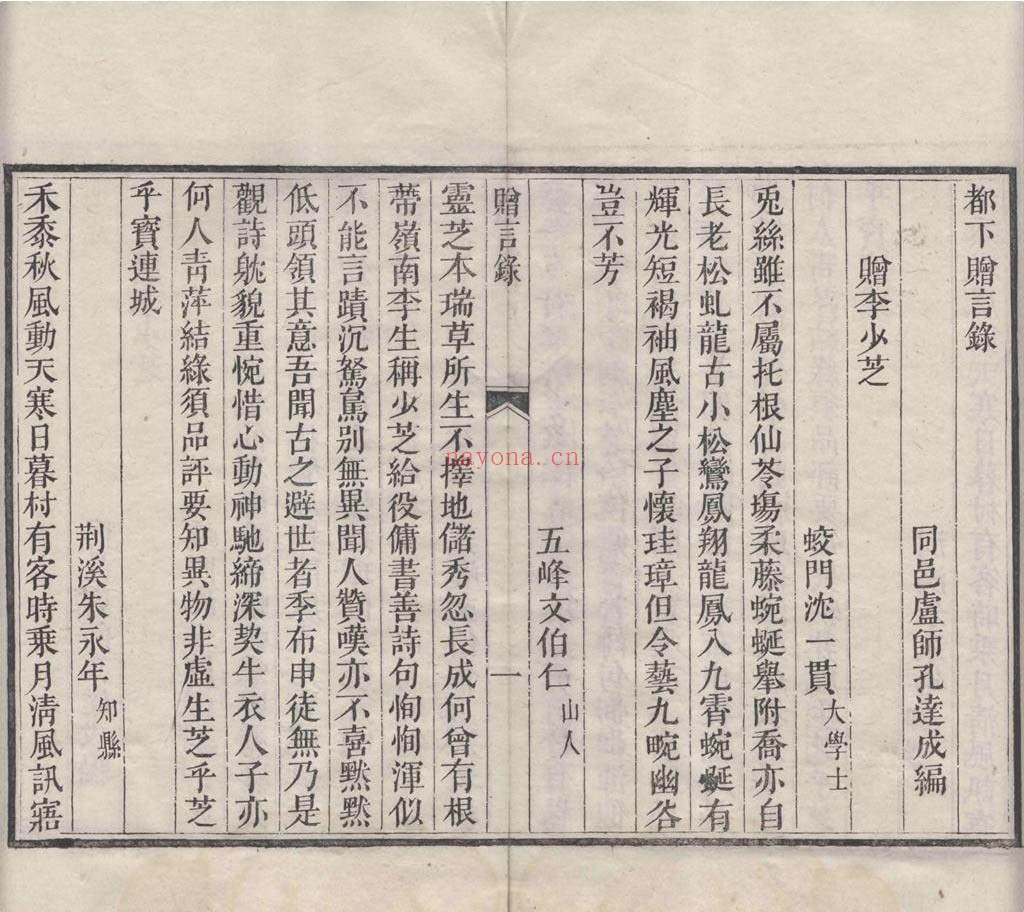 都下贈言錄
同邑盧師孔達成編
贈李少芝
蛟門沈一貫大學士
兎絲雖不屬托根仙苓塲柔藤蜿蜒舉附喬亦自
長老松虬龍古小松鸞鳳翔龍鳳入九霄蜿蜒有
輝光短褐袖風塵之子懷珪璋但令藝九畹幽谷
豈不芳
五峰文伯仁山人
贈言錄
一
靈芝本瑞草所生不擇地儲秀忽長成何曾有根
蒂嶺南李生稱少芝給役傭書善詩句恂恂渾似
不能言蹟沉駑駘別無異聞人贊嘆亦不喜默默
低頭領其意吾聞古之避世者季布申徒無乃是
觀詩覘貌重惋惜心動神馳締深契牛衣人子亦
何人靑萍結綠須品評要知異物非虛生芝乎芝
乎寶連城
荆溪朱永年知縣
禾黍秋風動天寒日暮村有客時乘月淸風訊寤
nayona.cn